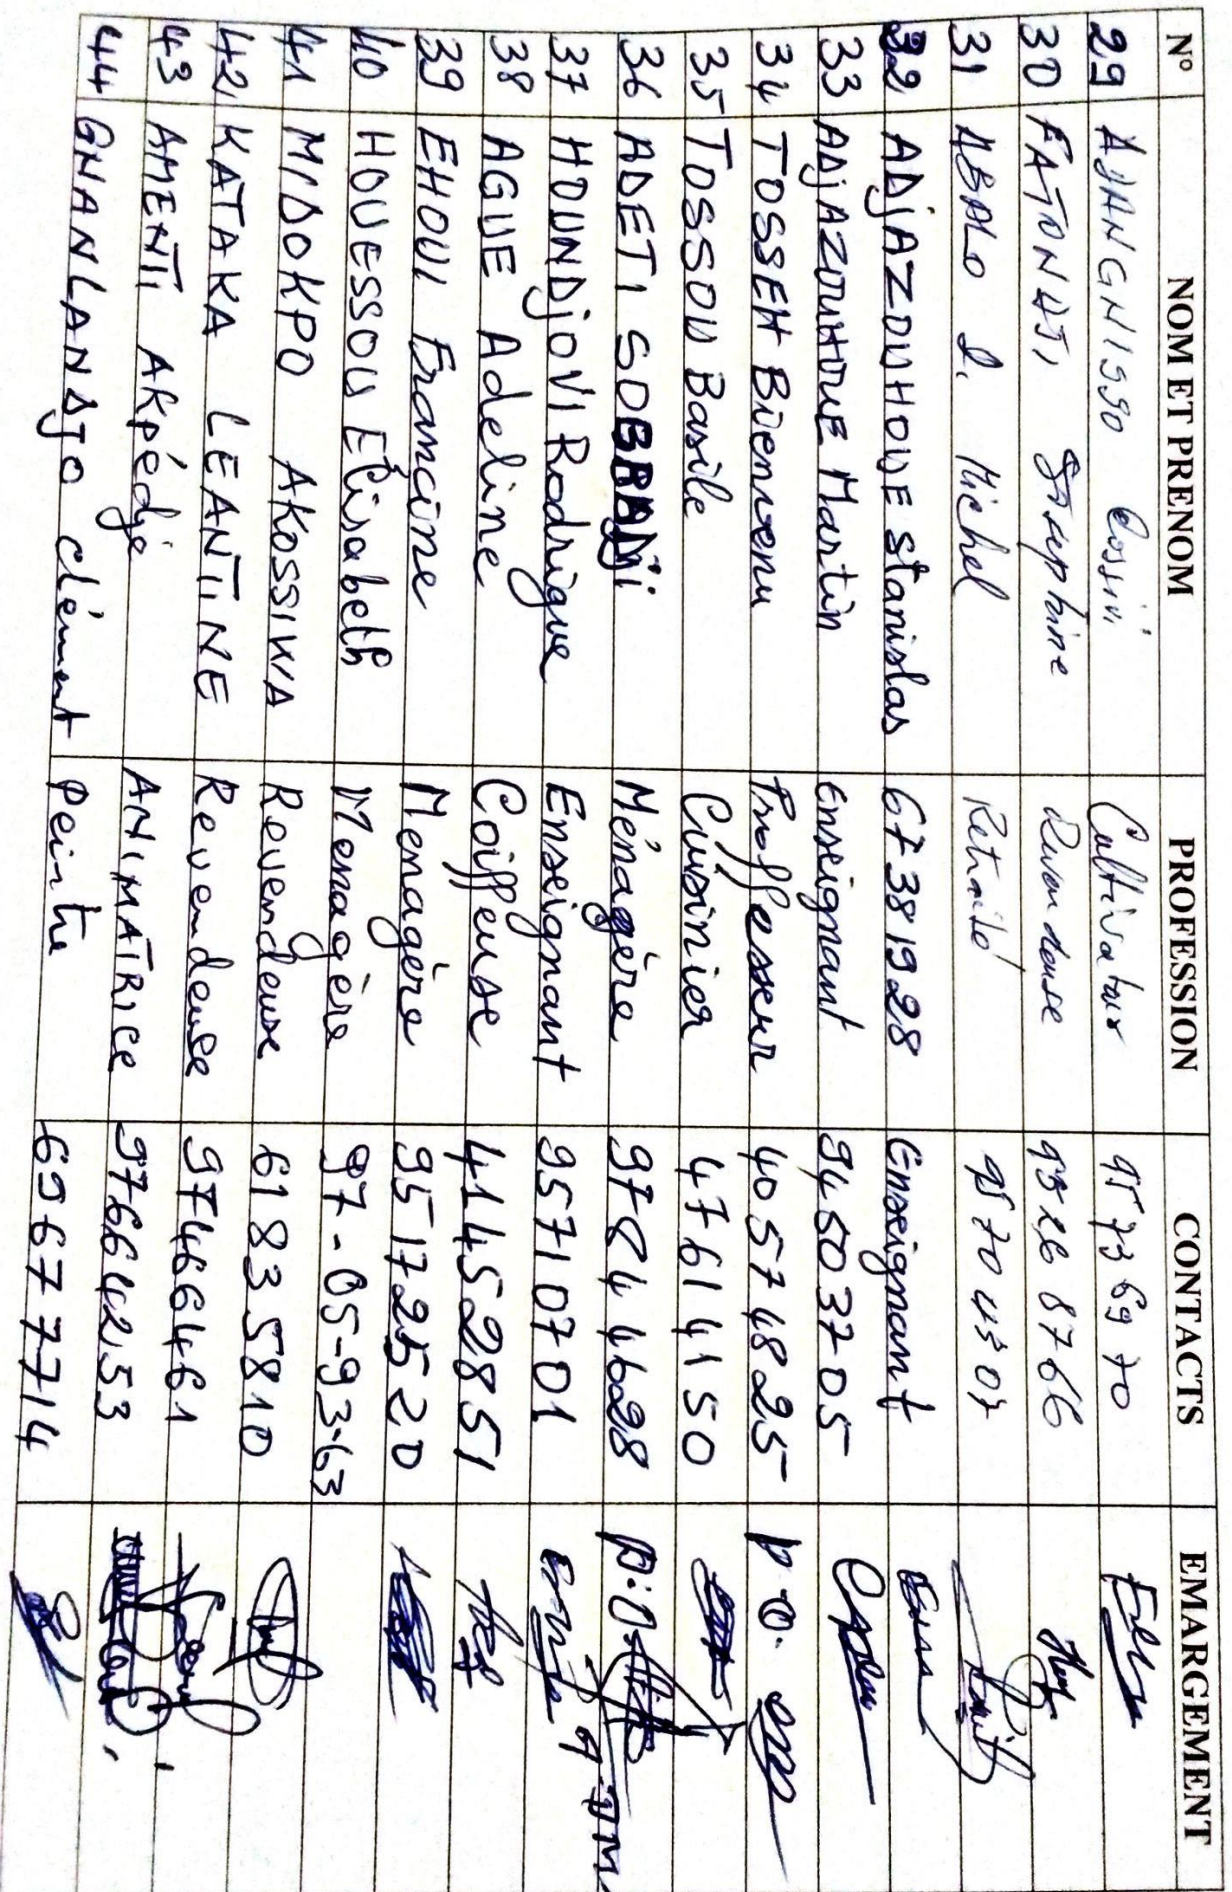 N° NOM ET PRENOM PROFESSION CONTACTS EMARGEMENT
29 AJANGNISSO Cossivi Cultivateur 95 73 69 70
30 FATONDJI Stephine Revendeuse 93 26 87 66
31 ABALO Michel Retraité 95 70 43 07
32 ADjAZOUHOUE Stanislas 67381928 Enseignant
33 ADjAZOUHOUE Martin Enseignant 94503705
34 TOSSEH Bienvenu Professeur 40574825 P.O.
35 TOSSOU Basile Cuisinier 47614150
36 ADETI SOBADji Ménagère 97844628 P.O
37 HOUNDjOVI Rodrigue Enseignant 95710701
38 AGUE Adeline Coiffeuse 41452851
39 EHOUI Francine Menagère 95172520
40 HOUESSOU Elisabeth Menagère 97-05-93-63
41 MIDOKPO AKOSSIWA Revendeuse 61835810
42 KATAKA LEANTINE Revendeuse 97466461
43 AMENTI AKpédje ANIMATRICE 97664253
44 GNANLANDJO clément peintre 69677714